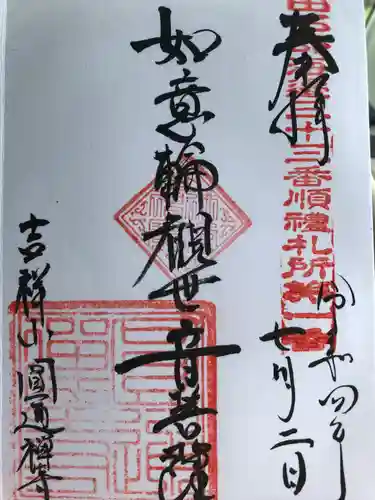 奉拝
三十三番順禮札所第一番
令和四年
七月二日
如意輪観世音菩薩
吉祥山 圓通禅寺